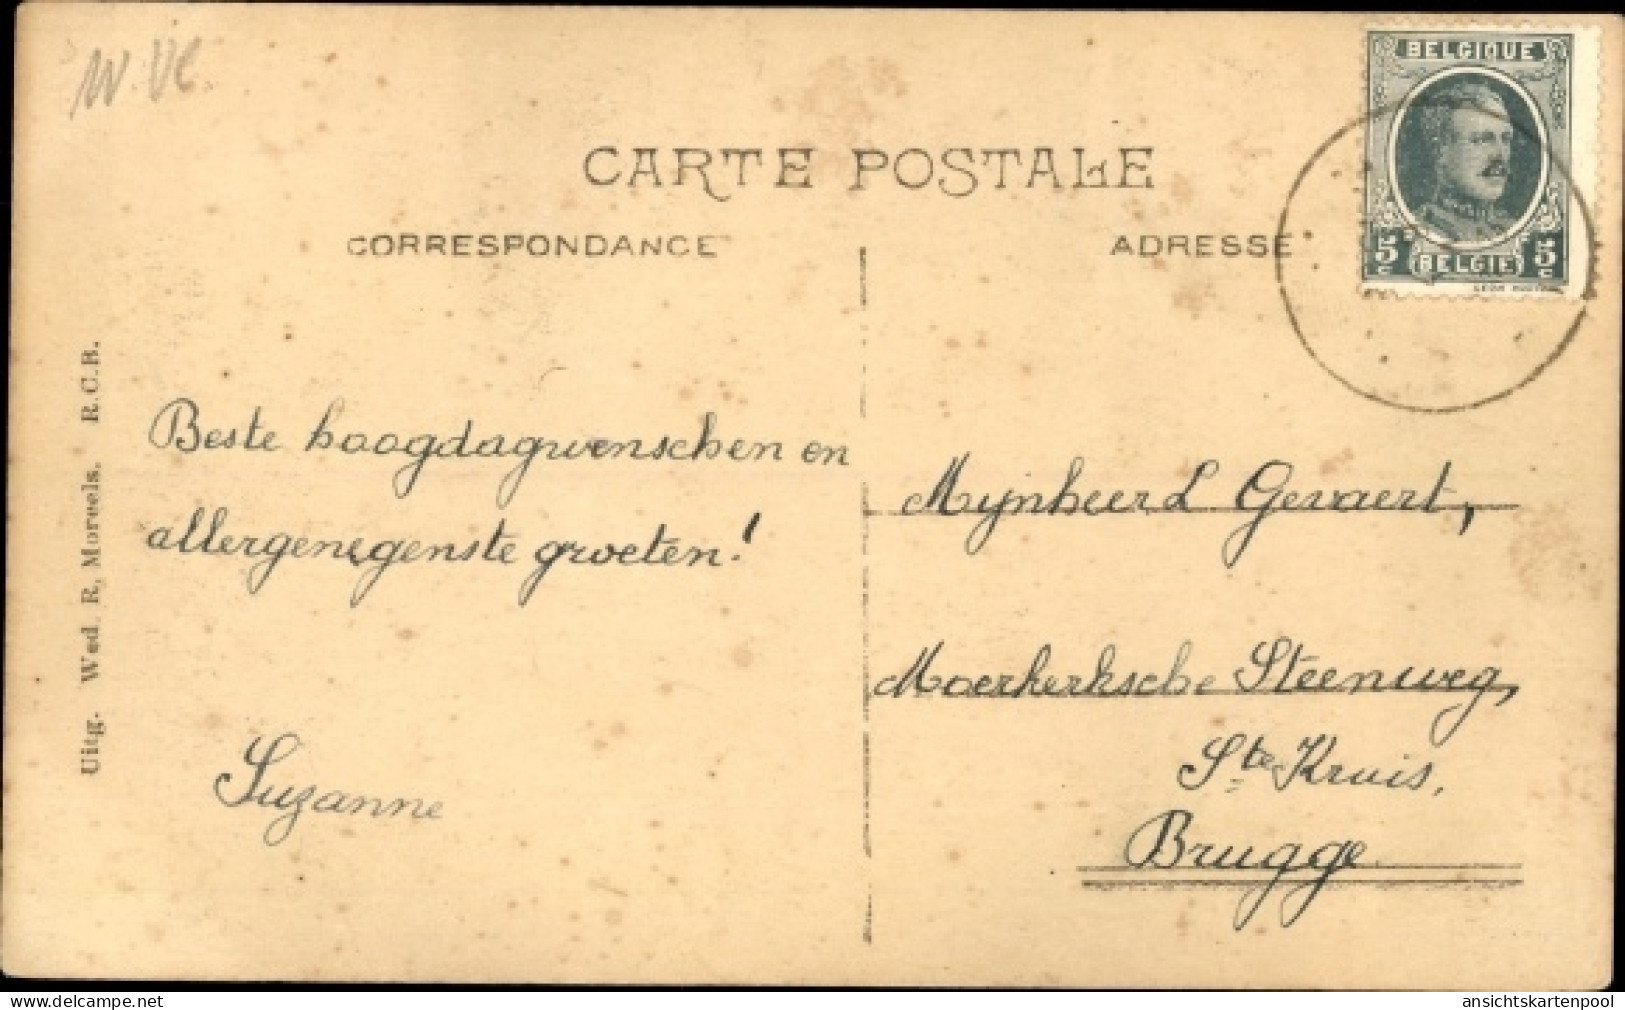 W. Vl.
BELGIQUE
5c BELGIE 5c
CARTE POSTALE
CORRESPONDANCE
ADRESSE
Uitg. Wed. R. Moreels. R.C.B.
Beste hoogdagwenschen en
allergenegenste groeten!
Suzanne
Mijnheer L Gevaert,
Moerkerksche Steenweg,
Ste Kruis,
Brugge
delcampe.net
ansichtskartenpool